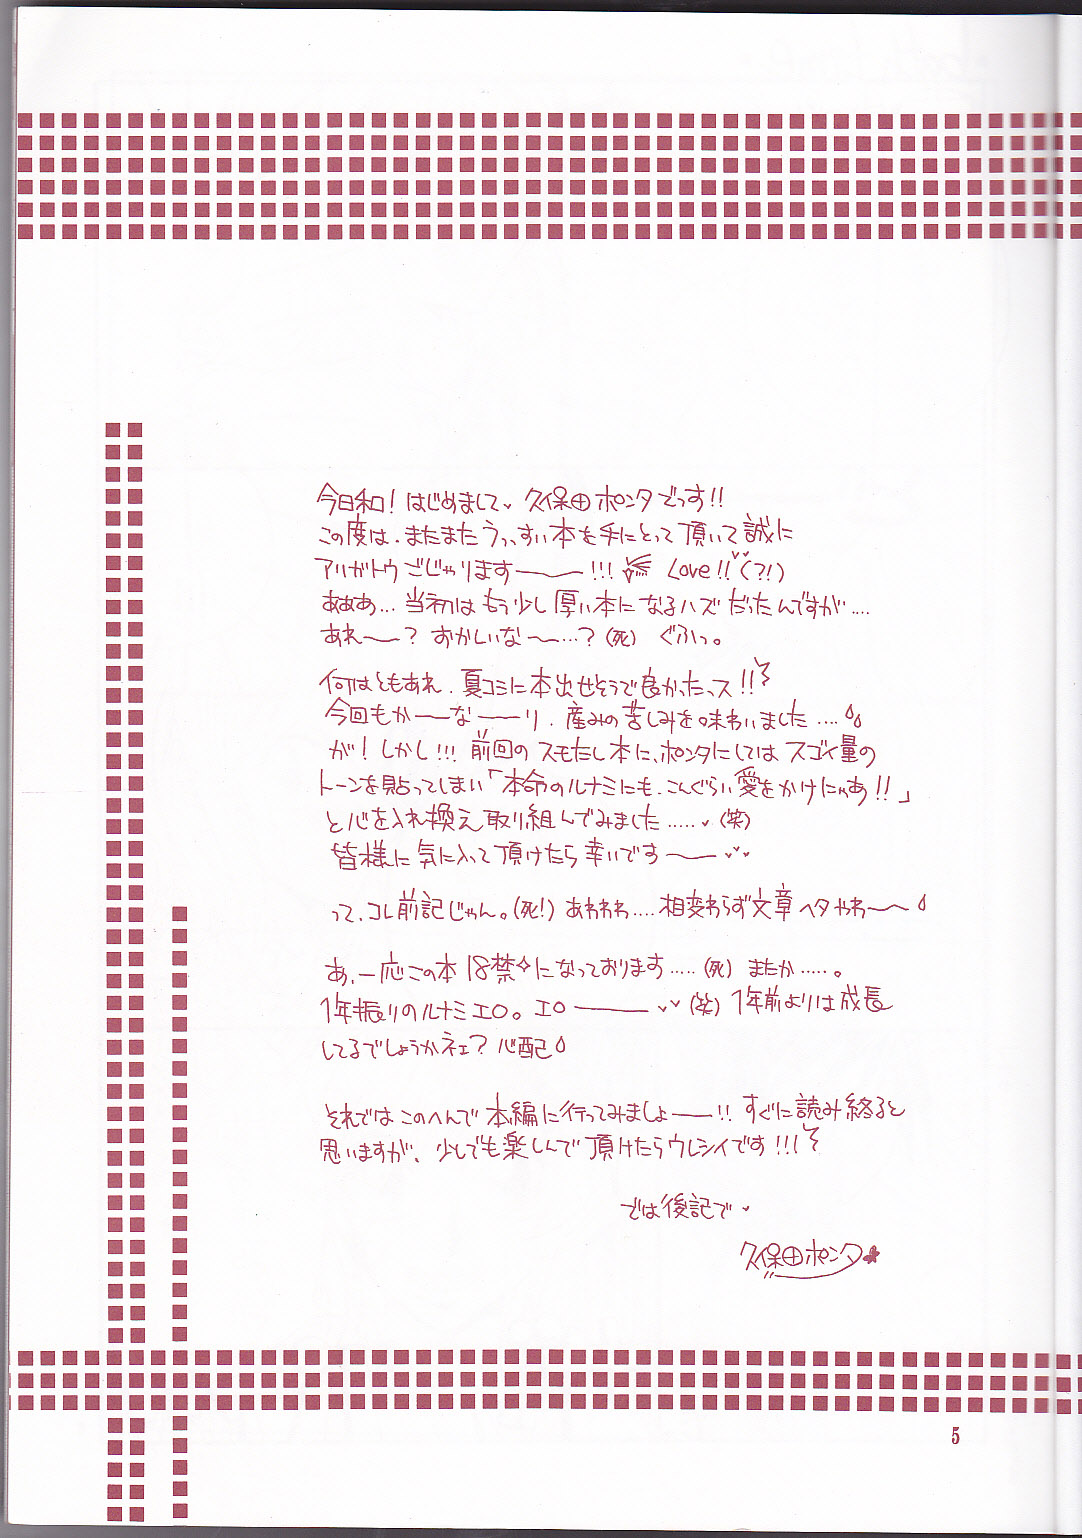 今日和! はじめまして♥ 久保田ポンタでっす!!
この度は、またまたうっっすい本を手にとって頂いて誠に
アリガトウごじゃりますー!!! Love!!♥♥(?!)
あああ… 当初はもう少し厚い本になるハズだったんですが….
あれ〜? おかしいな〜…? (死) ぐふっ。
何はともあれ、夏コミに本出せそうで良かったっス!!
今回もかーなーり、産みの苦しみを味わいました….
が! しかし!!! 前回のスモたし本に、ポンタにしてはスゴイ量の
トーンを貼ってしまい「本命のルナミにも、こんぐらい愛をかけにゃあ!!」
と心を入れ換え取り組んでみました…..♥(笑)
皆様に気に入って頂けたら幸いですー♥♥
って、コレ前記じゃん。(死!) あわわわ…. 相変わらず文章ヘタやわ〜
あ、一応この本18禁✧になっております….. (死) またか…..。
1年振りのルナミエロ。エロー♥♥ (笑) 1年前よりは成長
してるでしょうかネェ? 心配
それではこのへんで本編に行ってみましょー!! すぐに読み終ると
思いますが、少しでも楽しんで頂けたらウレシイです!!!
では後記で♥
久保田ポンタ
5